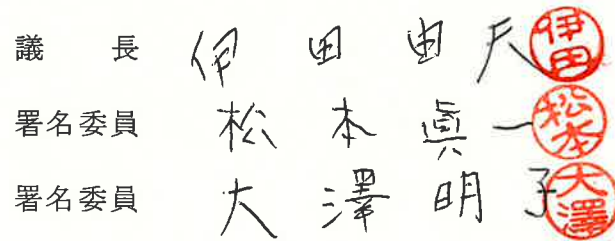 議長 伊田由夫 伊田
署名委員 松本眞一 松本
署名委員 大澤明子 大澤